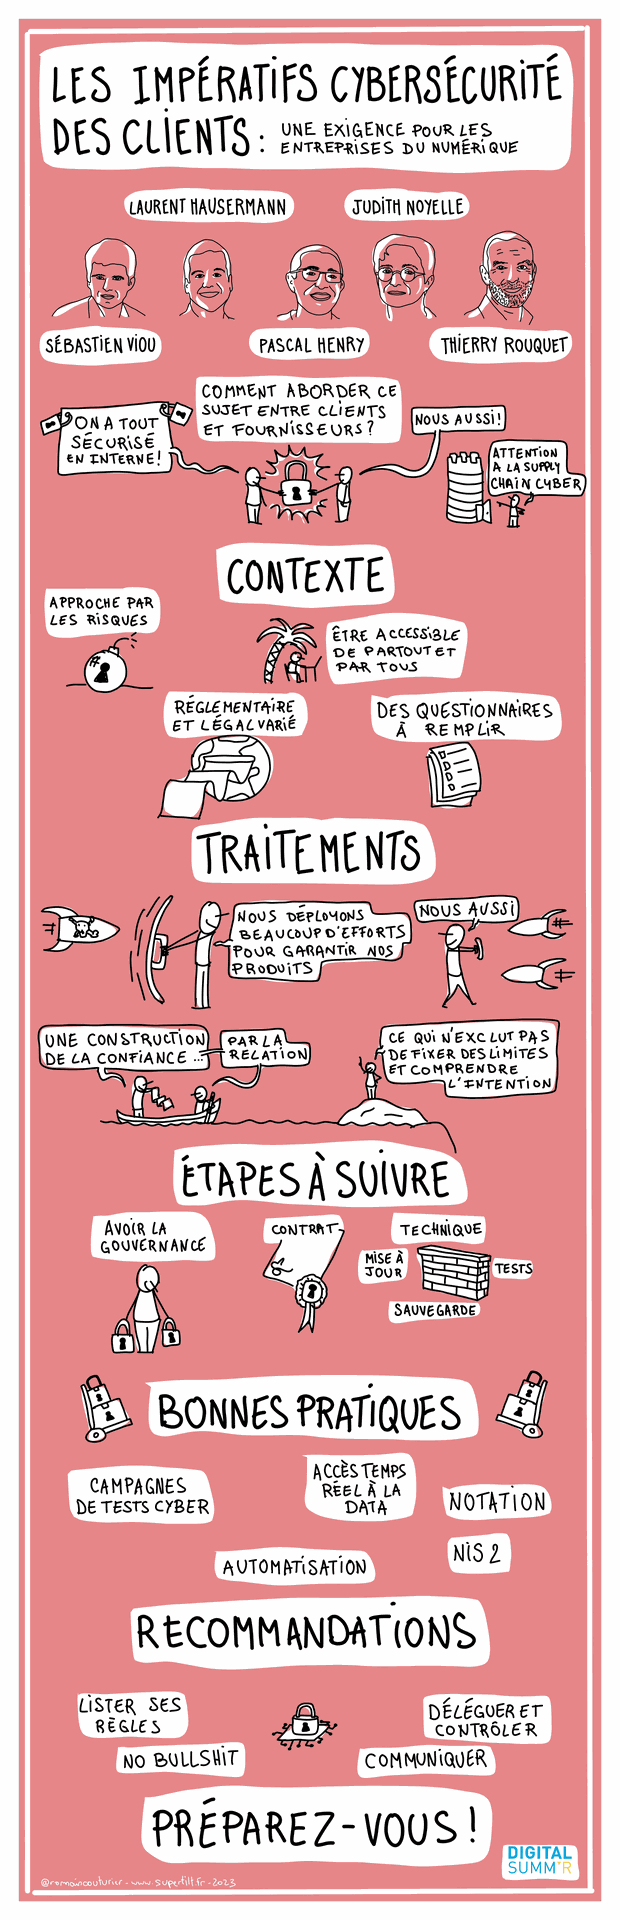 LES IMPÉRATIFS CYBERSÉCURITÉ
DES CLIENTS : UNE EXIGENCE POUR LES
ENTREPRISES DU NUMÉRIQUE
LAURENT HAUSERMANN
JUDITH NOYELLE
SÉBASTIEN VIOU
PASCAL HENRY
THIERRY ROUQUET
COMMENT ABORDER CE
SUJET ENTRE CLIENTS
ET FOURNISSEURS ?
ON A TOUT
SÉCURISÉ
EN INTERNE !
NOUS AUSSI !
ATTENTION
A LA SUPPLY
CHAIN CYBER
CONTEXTE
APPROCHE PAR
LES RISQUES
ÊTRE ACCESSIBLE
DE PARTOUT ET
PAR TOUS
RÉGLEMENTAIRE
ET LÉGAL VARIÉ
DES QUESTIONNAIRES
À REMPLIR
TRAITEMENTS
NOUS DÉPLOYONS
BEAUCOUP D'EFFORTS
POUR GARANTIR NOS
PRODUITS
NOUS AUSSI
UNE CONSTRUCTION
DE LA CONFIANCE ...
PAR LA
RELATION
CE QUI N'EXCLUT PAS
DE FIXER DES LIMITES
ET COMPRENDRE
L'INTENTION
ÉTAPES À SUIVRE
AVOIR LA
GOUVERNANCE
CONTRAT
TECHNIQUE
MISE À
JOUR
TESTS
SAUVEGARDE
BONNES PRATIQUES
CAMPAGNES
DE TESTS CYBER
ACCÈS TEMPS
RÉEL À LA
DATA
NOTATION
AUTOMATISATION
NIS 2
RECOMMANDATIONS
LISTER SES
RÈGLES
DÉLÉGUER ET
CONTRÔLER
NO BULLSHIT
COMMUNIQUER
PRÉPAREZ-VOUS !
DIGITAL
SUMM'R
@romaincouturier - www.supertilt.fr - 2023